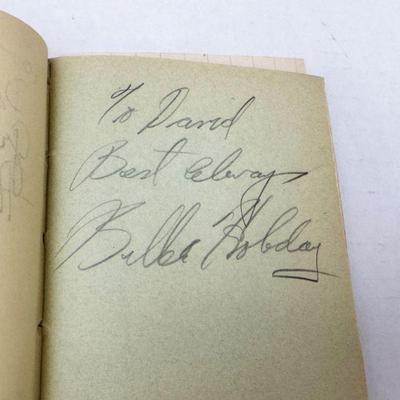 To David
Best always
Billie Holiday